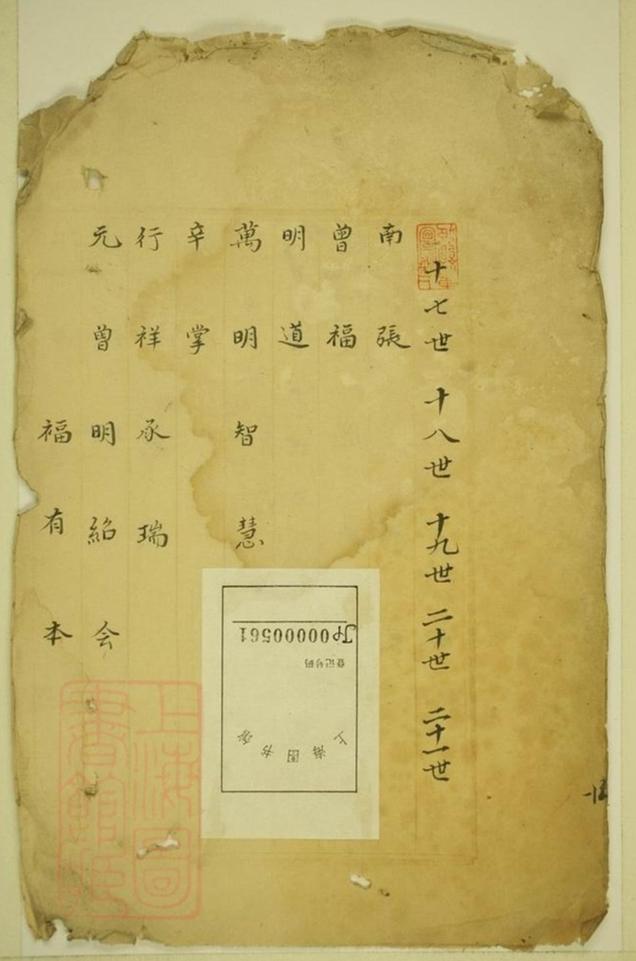 十七世 十八世 十九世 二十世 二十一世
南 張
曾 福
明 道
萬 明 智 慧
辛 掌
行 祥 承 瑞
元 曾 明 紹 会
福 有 本
上海图书馆
登记号码
JP00000561
上海圖書館藏